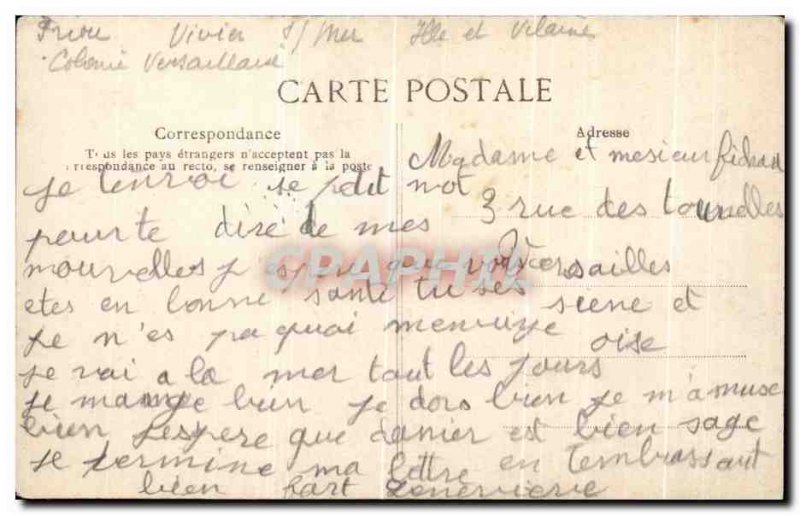 Priou Vivier s/mer Ille et Vilaine
Colonie Versaillaise
CARTE POSTALE
Correspondance
Tous les pays étrangers n'acceptent pas la
correspondance au recto, se renseigner à la poste
Adresse
Madame et mesieur
3 rue des tournelles
Versailles
siene et
oise
je tenvoi se petit mot
pour te dire de mes
nouvelles j espere que vous
etes en bonne sante tu ses
je n'es pa quoi menuije
je vai a la mer tout les jours
je mange bien je dors bien je m'amuse
bien jespere que danier est bien sage
je termine ma lettre en tembrassant
bien fort Genevieve
CPAPHIL